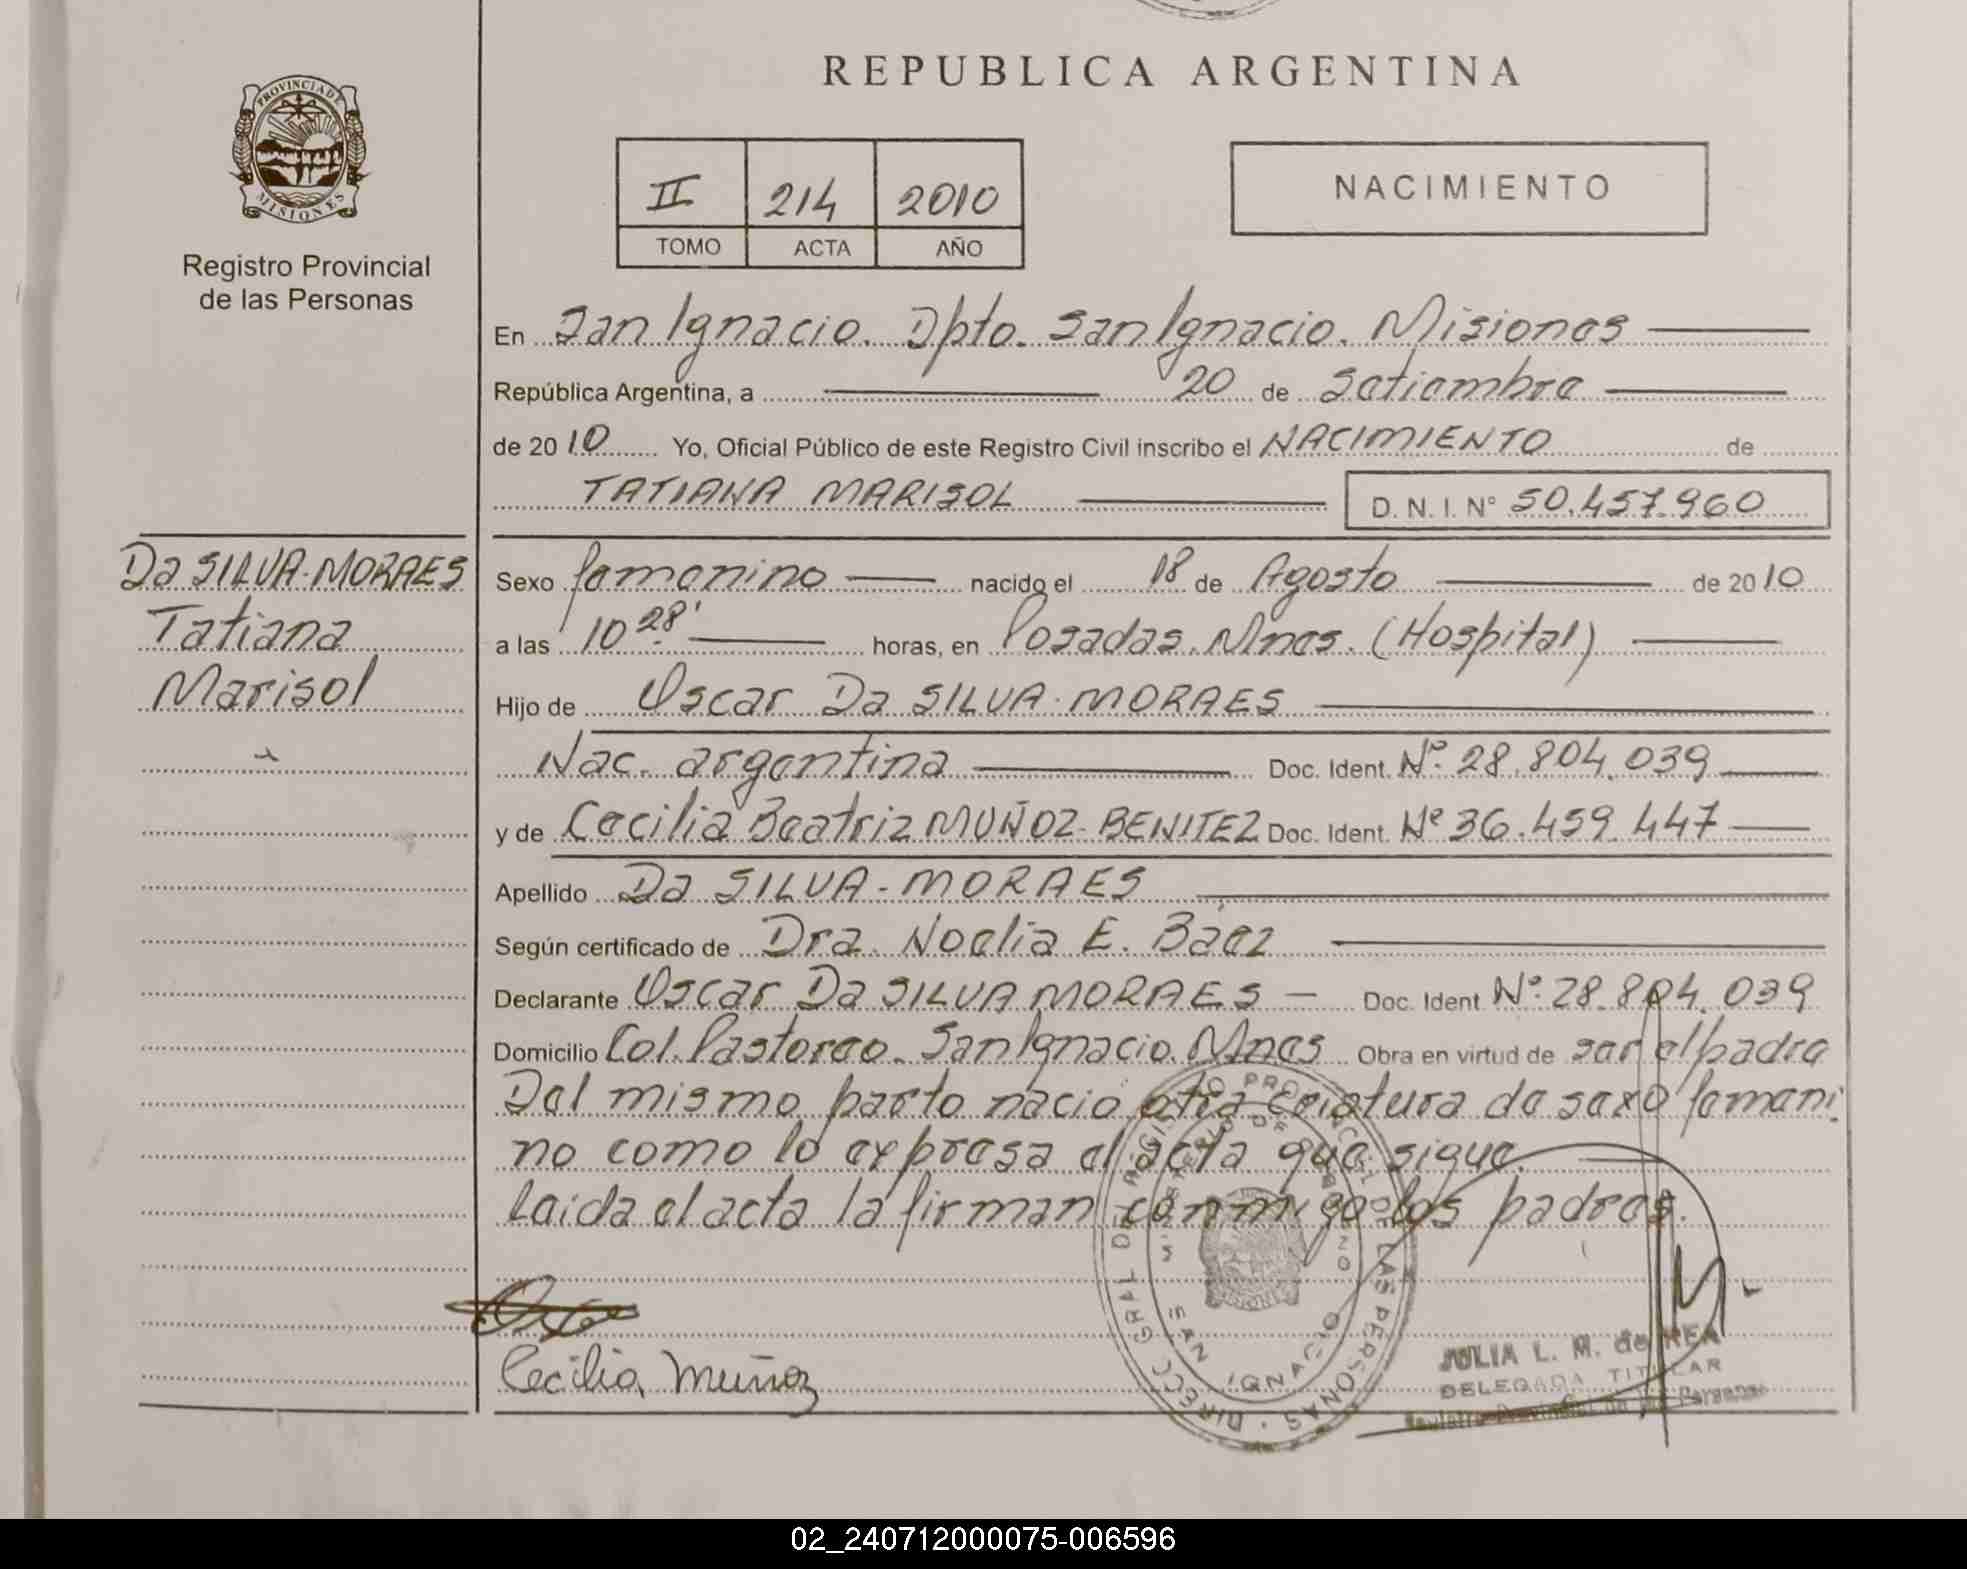 REPUBLICA ARGENTINA
PROVINCIA DE MISIONES
Registro Provincial
de las Personas
II 214 2010
TOMO ACTA AÑO
NACIMIENTO
En San Ignacio. Dpto. San Ignacio. Misiones
República Argentina, a 20 de Setiembre
de 2010 Yo, Oficial Público de este Registro Civil inscribo el NACIMIENTO de
TATIANA MARISOL D. N. I. N° 50.457.960
Da SILVA-MORAES
Tatiana
Marisol
Sexo femenino nacido el 18 de Agosto de 2010
a las 10 28' horas, en Posadas. Mnes. (Hospital)
Hijo de Oscar Da SILVA-MORAES
Nac. argentina Doc. Ident. Nº 28.804.039
y de Cecilia Beatriz MUÑOZ-BENITEZ Doc. Ident. Nº 36.459.447
Apellido Da SILVA-MORAES
Según certificado de Dra. Noelia E. Báez
Declarante Oscar Da SILVA MORAES - Doc. Ident Nº 28.804.039
Domicilio Col. Pastoreo. San Ignacio. Mnes Obra en virtud de ser el padre
Del mismo parto nacio otra criatura de sexo femeni
no como lo expresa el acta que sigue.
Leida el acta la firman conmigo los padres.
Cecilia Muñoz
DIRECC GRAL DEL REGISTRO PROVINCIAL DE LAS PERSONAS
MINISTERIO DE GOBIERNO
SAN IGNACIO
JULIA L. M. de REA
DELEGADA TITULAR
Registro Provincial de las Personas
02_240712000075-006596